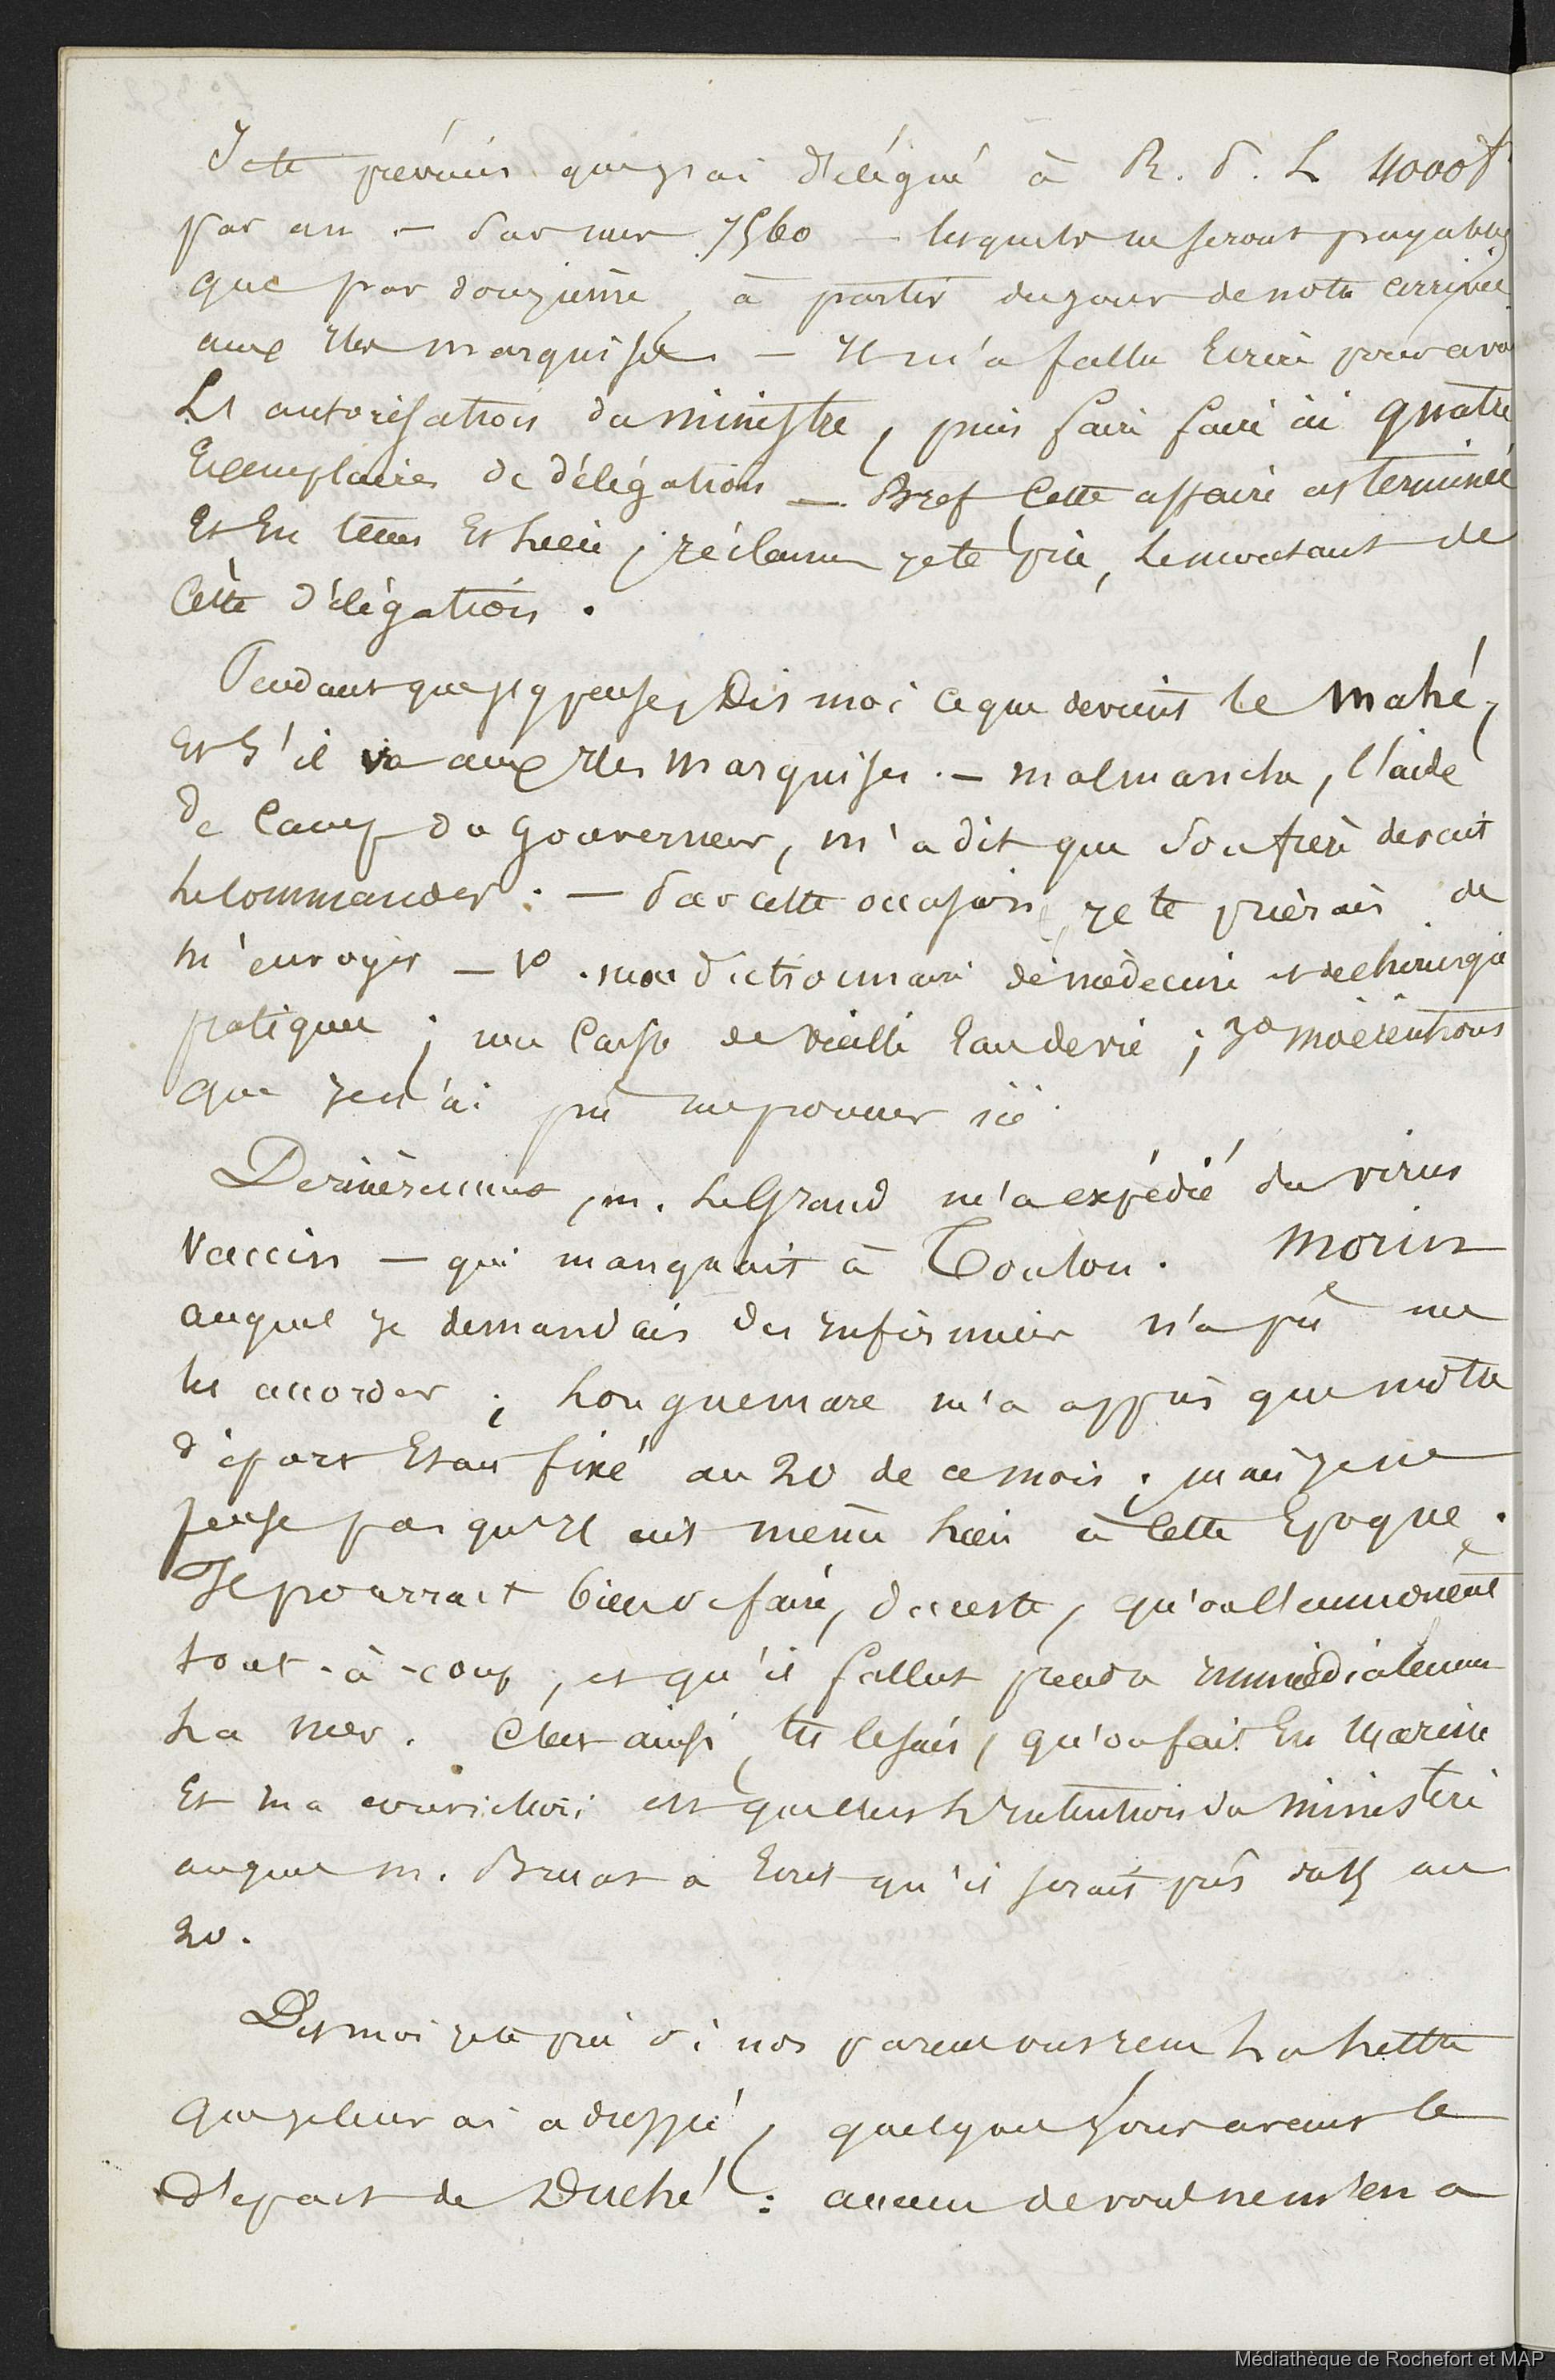 Je te préviens que j'ai délégué à R. P. L 4000f
par an — sur mes 7560 — lesquels ne seront payables
que par douzième, à partir du jour de notre arrivée
aux Iles marquises — Il m'a fallu Ecrire pour avoir
L'autorisation du ministre, puis faire faire ici quatre
Exemplaires de délégation — Bref Cette affaire est terminée
Et En tems Et lieu, réclame je te prie, le montant de
Cette délégation.
Pendant que j'y pense, Dis moi ce que devient le Mahé,
Et s'il va aux Iles Marquises. — malmanche, l'aide
de Camp du Gouverneur, m'a dit que son frère devait
le Commander : — Par cette occasion, je te prierais de
m'envoyer — 1o mon dictionnaire de médecine et de chirurgie
pratiques ; une Caisse de vieille Eau de vie ; 3o
que je n'ai pu me procurer ici.
Dernièrement, m. LeGrand m'a expédié du virus
Vaccin — qui manquait à Toulon. Morin
auquel je demandais des infirmiers n'a pu me
les accorder ; Longuemare m'a appris que notre
départ Etait fixé au 20 de ce mois ; mais je ne
pense pas qu'il ait même lieu à cette Epoque.
Il pourrait bien se faire, du reste, qu'on l'ennonçât
tout-à-coup, et qu'il fallut prendre immédiatement
La mer. C'est ainsi, tu le sais, qu'on fait En Marine
Et ma conviction est que c'est L'intention du ministère
auquel m. Bruat a Ecrit qu'il serait prêt dès le
20.
Dis moi je te prie si nos parens ont reçu La Lettre
que je leur ai adressée, quelques jours avant le
départ de Duché : aucun de vous ne m'en a
Médiathèque de Rochefort et MAP